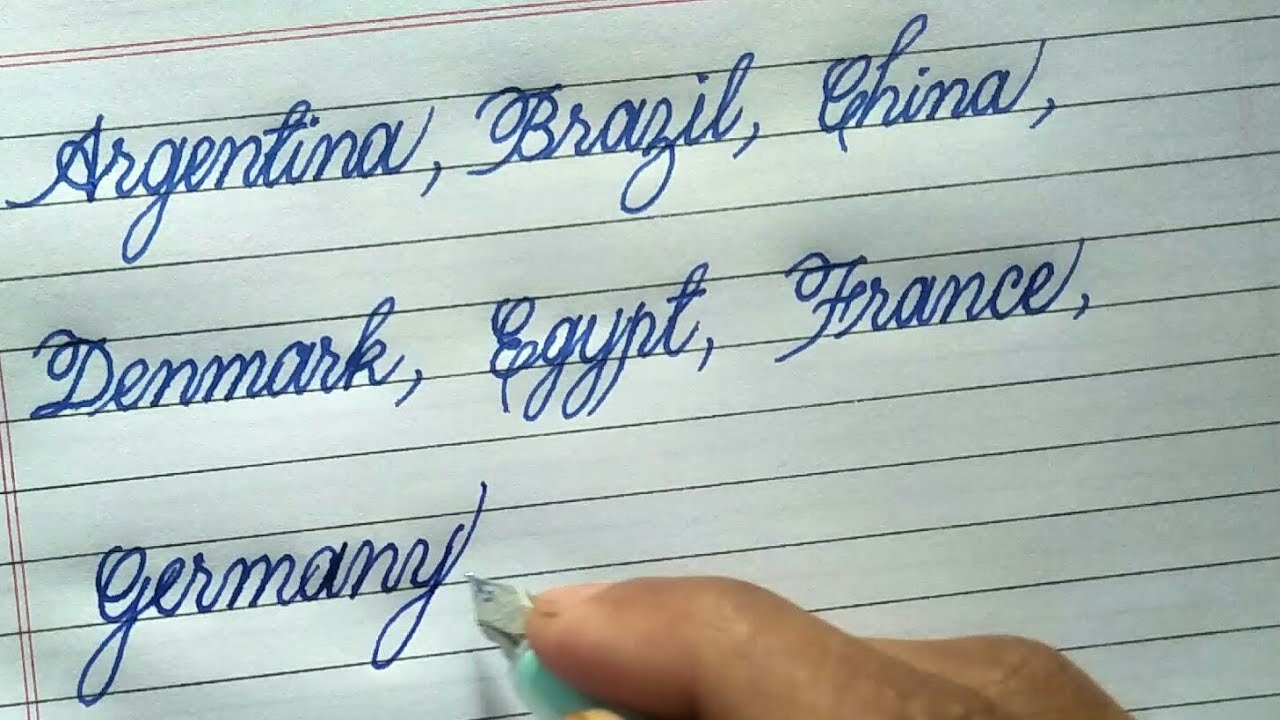 Argentina, Brazil, China,
Denmark, Egypt, France,
Germany